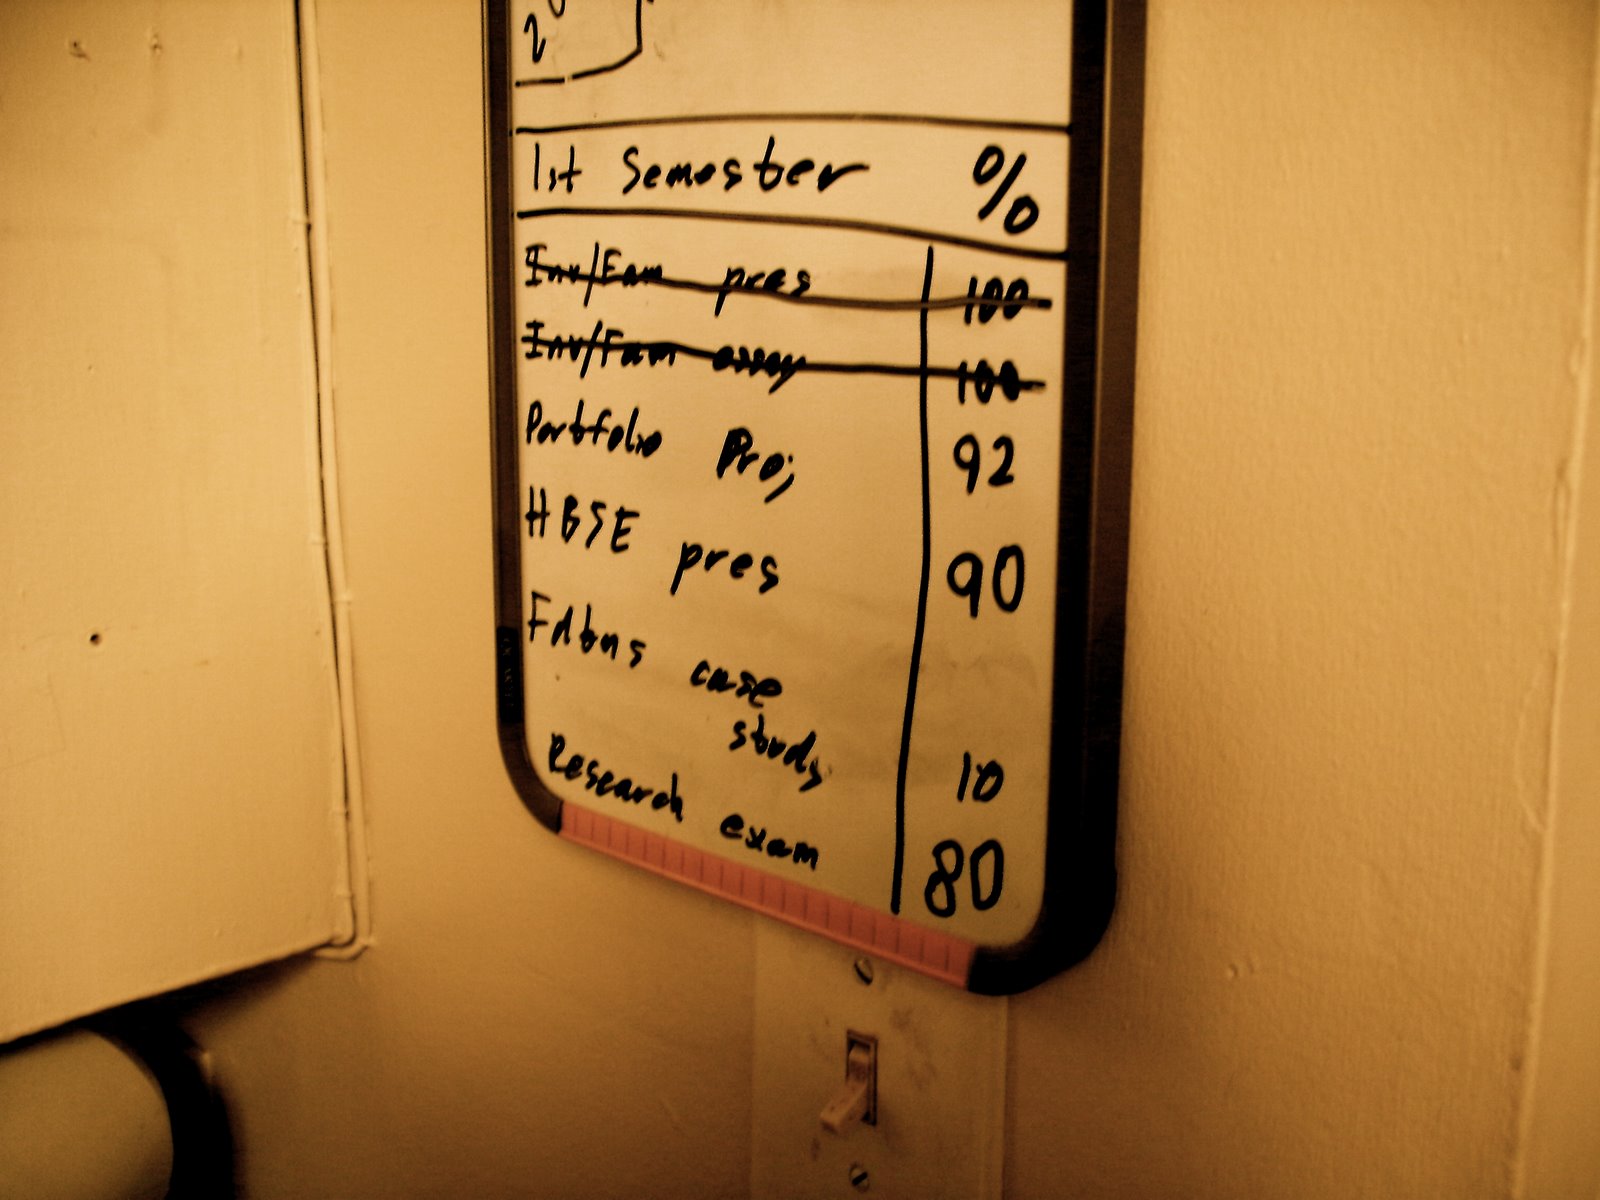 2
1st Semester %
Inv/Fam pres 100
Inv/Fam essay 100
Portfolio Proj 92
HBSE pres 90
Fdtns case
study 10
Research exam 80